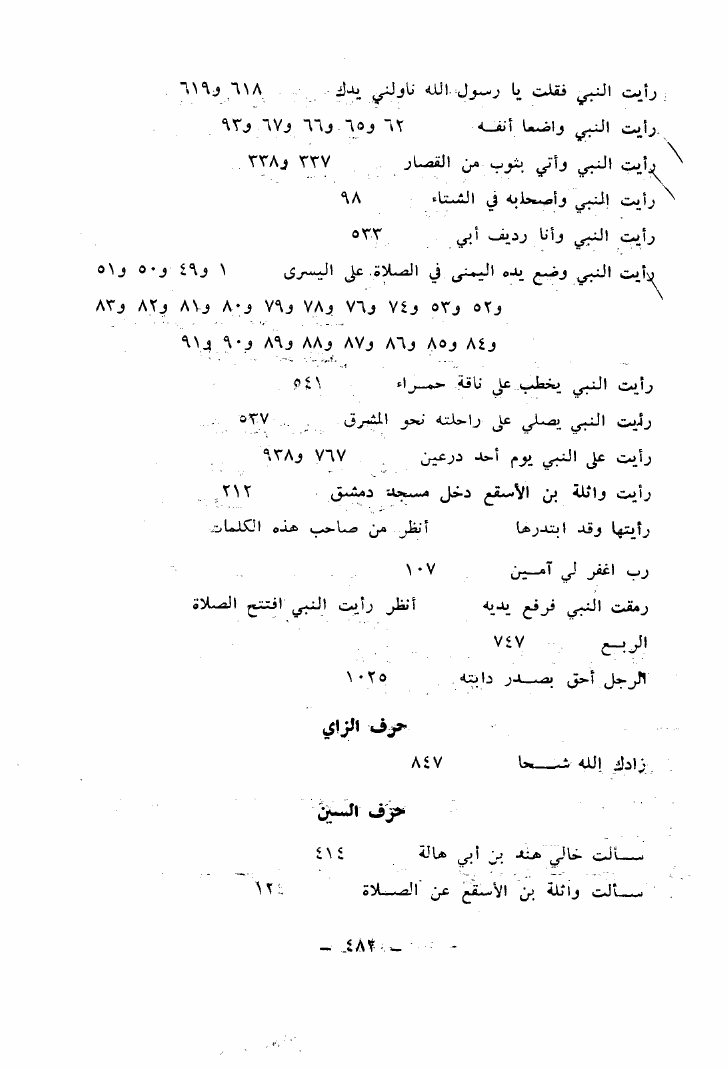 رأيت النبي فقلت يا رسول الله ناولني يدك ٦١٨ و٦١٩
رأيت النبي واضعا أنفـه ٦٢ و٦٥ و٦٦ و٦٧ و٩٣
رأيت النبي وأتي بثوب من القصار ٣٣٧ و٣٣٨
رأيت النبي وأصحابه في الشتاء ٩٨
رأيت النبي وأنا رديف أبي ٥٣٣
رأيت النبي وضع يده اليمنى في الصلاة على اليسرى ١ و٤٩ و٥٠ و٥١
و٥٢ و٥٣ و٧٤ و٧٦ و٧٨ و٧٩ و٨٠ و٨١ و٨٢ و٨٣
و٨٤ و٨٥ و٨٦ و٨٧ و٨٨ و٨٩ و٩٠ و٩١
رأيت النبي يخطب على ناقة حمـراء ٥٤١
رأيت النبي يصلي على راحلته نحو المشرق ٥٣٧
رأيت على النبي يوم أحد درعين ٧٦٧ و٩٣٨
رأيت واثلة بن الأسقع دخل مسجد دمشق ٢١٢
رأيتها وقد ابتدرها أنظر من صاحب هذه الكلمات
رب اغفر لي آمـين ١٠٧
رمقت النبي فرفع يديه أنظر رأيت النبي افتتح الصلاة
الربـع ٧٤٧
الرجل أحق بصـدر دابته ١٠٢٥
حرف الزاي
زادك الله شـحا ٨٤٧
حرف السين
سـألت خالي هند بن أبي هالة ٤١٤
سـألت واثلة بن الأسقع عن الصـلاة ١٢٤